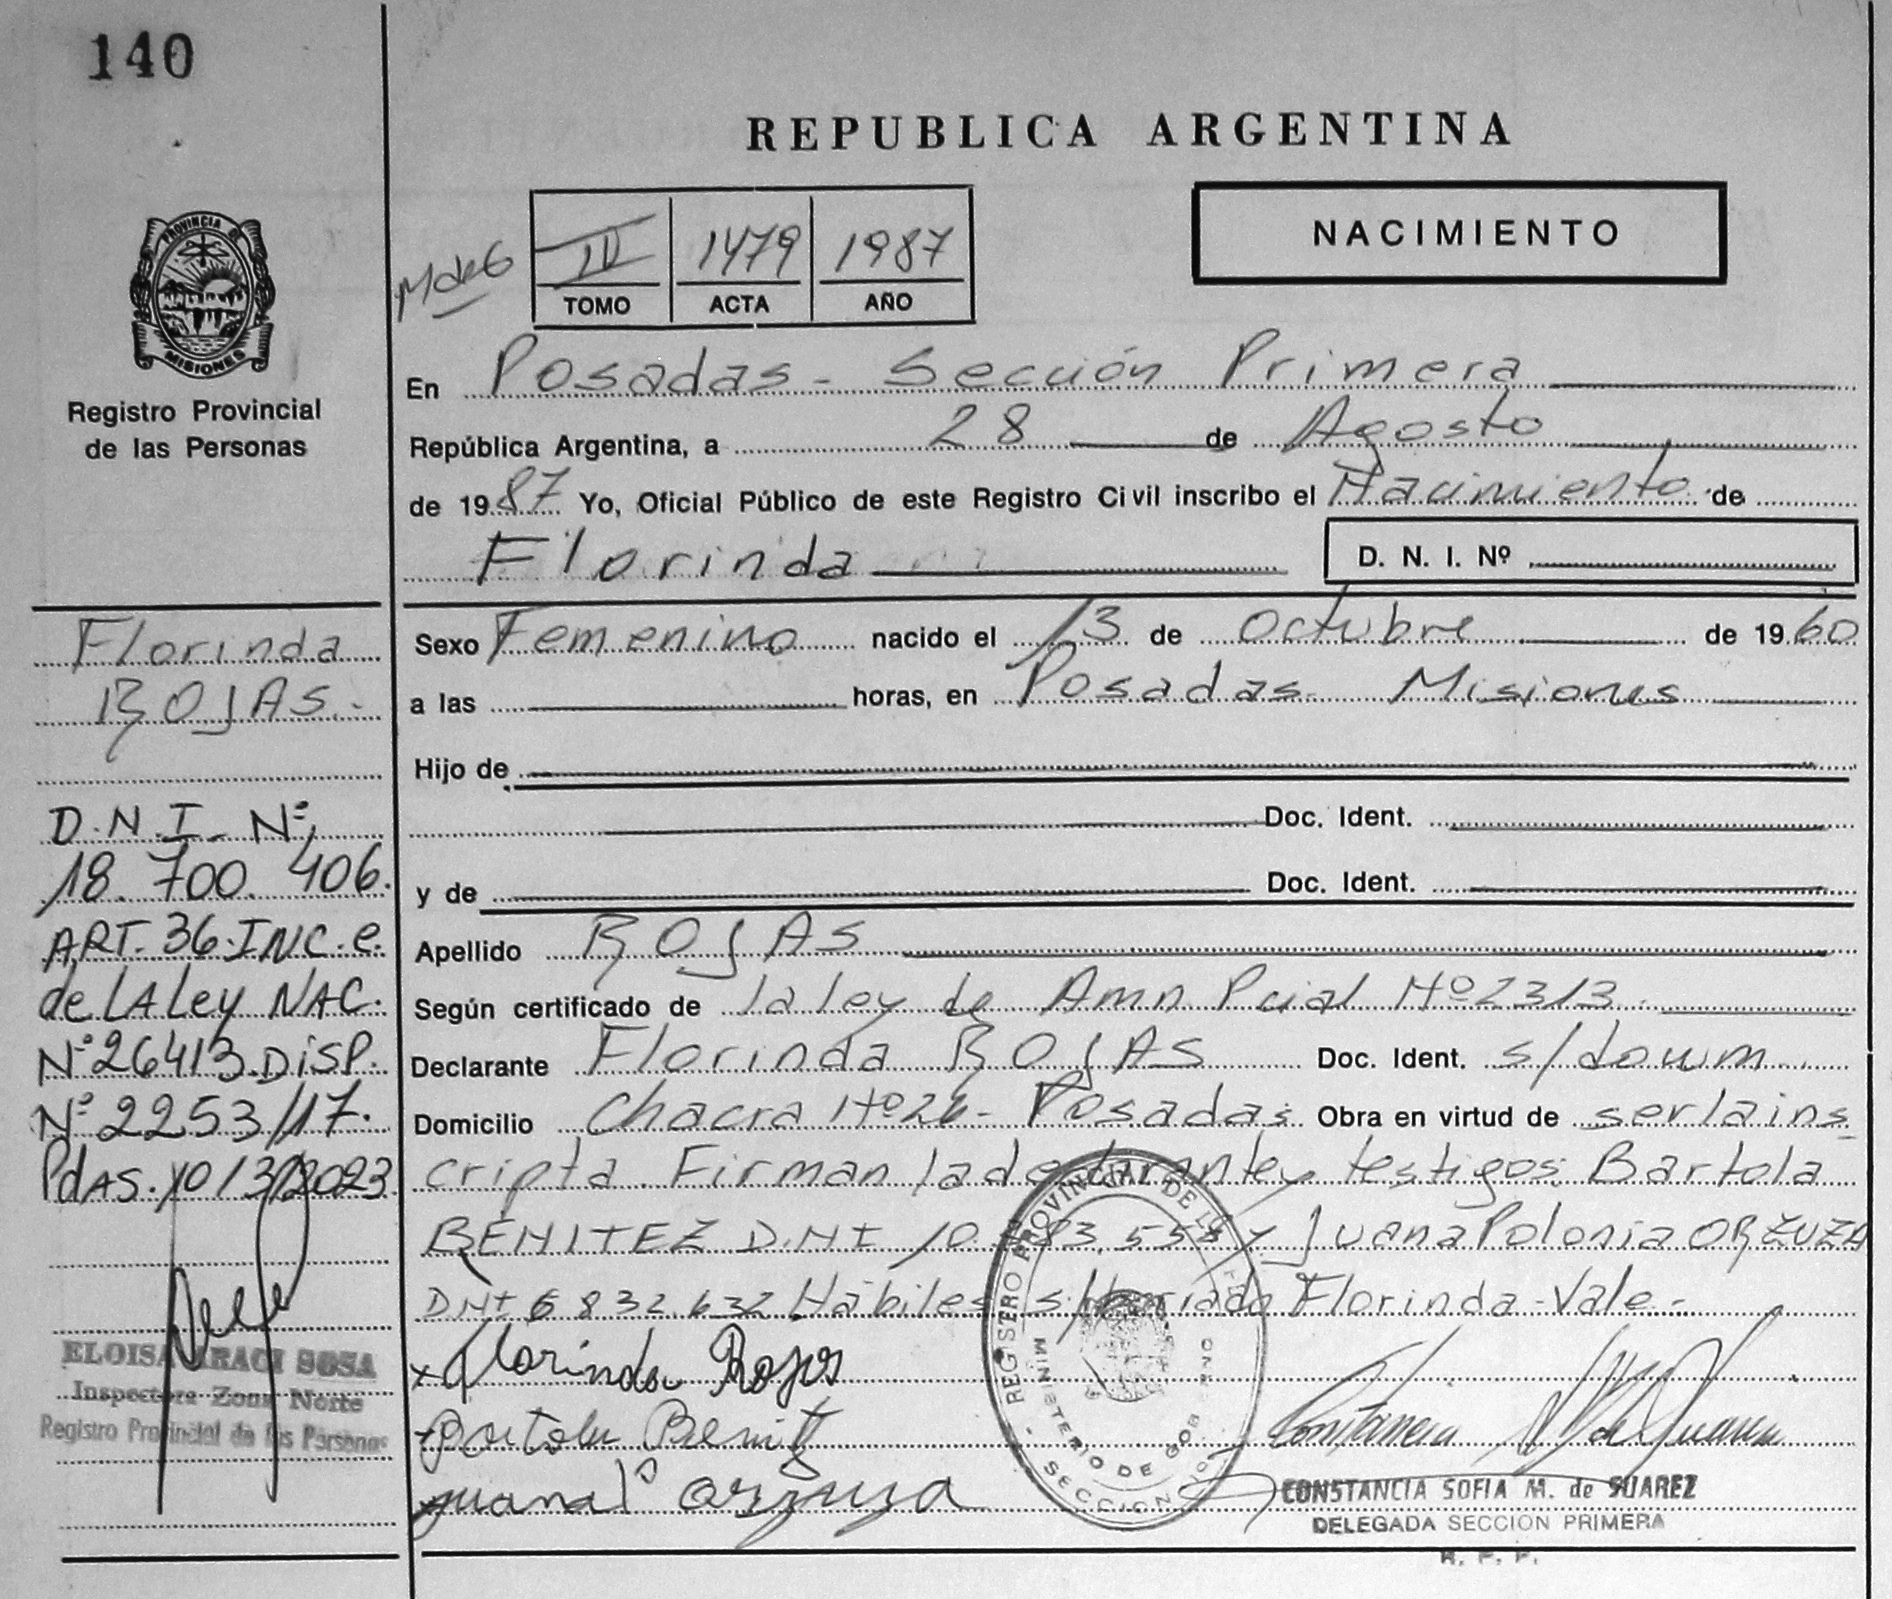 140
REPUBLICA ARGENTINA
PROVINCIA DE
MISIONES
Registro Provincial
de las Personas
M de G
IV 1479 1987
TOMO ACTA AÑO
NACIMIENTO
En Posadas - Sección Primera
República Argentina, a 28 de Agosto
de 1987 Yo, Oficial Público de este Registro Civil inscribo el Nacimiento de
Florinda D. N. I. Nº
Florinda
ROJAS.-
D.N.I. Nº
18.700.406.
ART. 36.INC.e.
de LA Ley NAC.
Nº 26413.DISP.
Nº 2253/17.
PdAS. 10/3/2023
ELOISA ARACI SOSA
Inspectora Zona Norte
Registro Provincial de las Personas
Sexo Femenino nacido el 13 de Octubre de 1960
a las horas, en Posadas Misiones
Hijo de
Doc. Ident.
y de Doc. Ident.
Apellido ROJAS
Según certificado de la ley de Amn. Pcial Nº 2313.
Declarante Florinda ROJAS Doc. Ident. s/docum.
Domicilio Chacra Nº 26 - Posadas Obra en virtud de ser la ins
cripta. Firman la declarante y testigos: Bartola
BENITEZ D.N.I 10. 83.558 y Juana Polonia ORZUZA
DNI 6832.632 Hábiles s/borriado Florinda - Vale -
x Florinda Rojas
Bartola Benitz
Juana P. Orzuza
REGISTRO PROVINCIAL DE LAS
MINISTERIO DE GOBIERNO
SECCION
CONSTANCIA SOFIA M. de SUAREZ
DELEGADA SECCION PRIMERA
R. P. P.